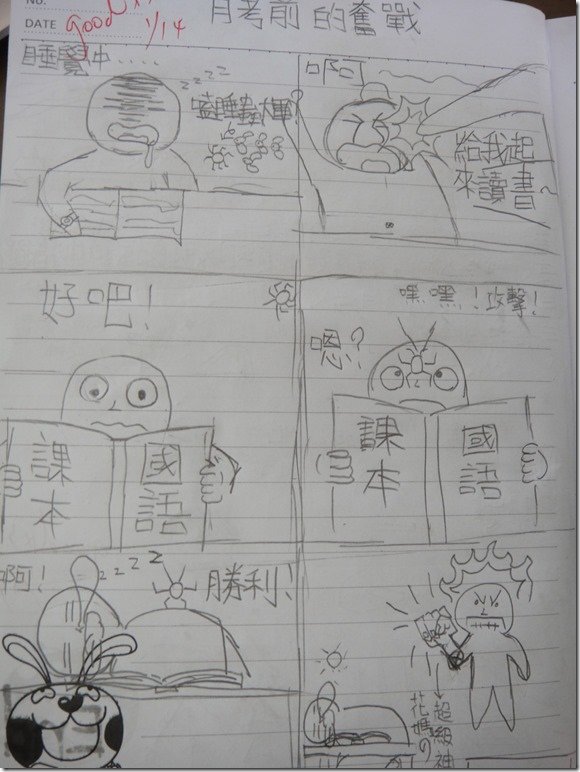 No.
DATE 1/14
good
月考前的奮戰
睡覺中....
zzzz
瞌睡蟲大軍!
啊
給我起
來讀書
好吧!
課本
國語
嘿嘿!攻擊!
嗯?
課本
國語
啊!
zzzz
勝利!
超級神
花媽の